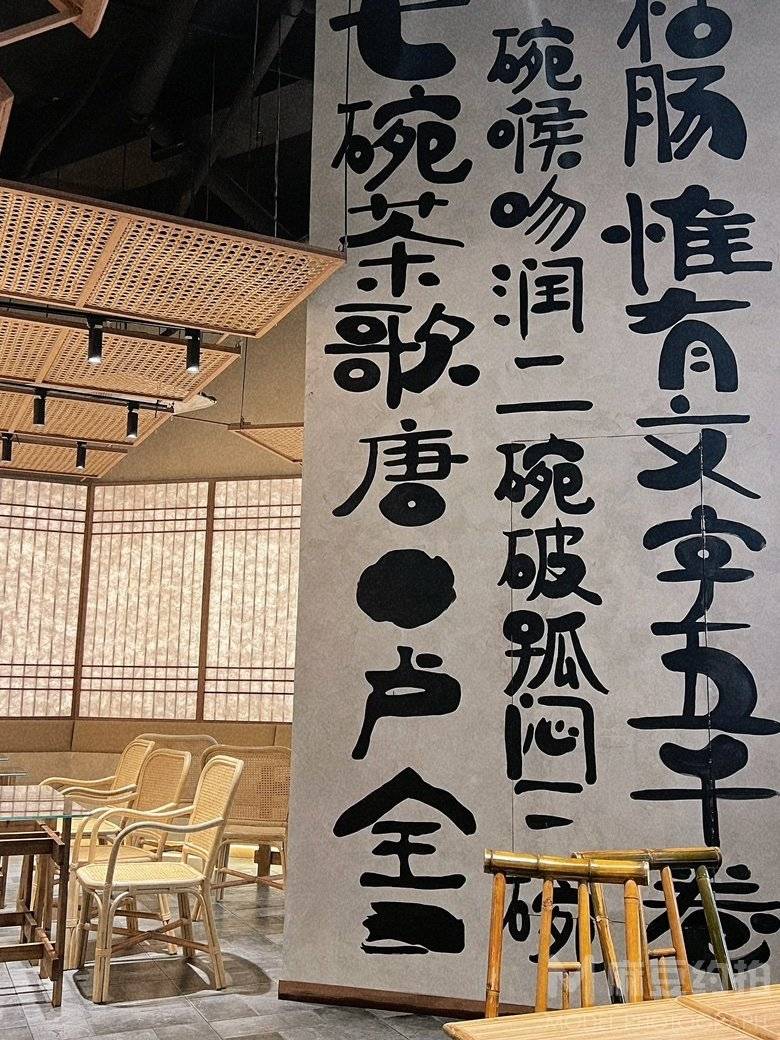 七碗茶歌唐●卢全
碗喉吻润二碗破孤闷三碗
枯肠惟有文字五千卷